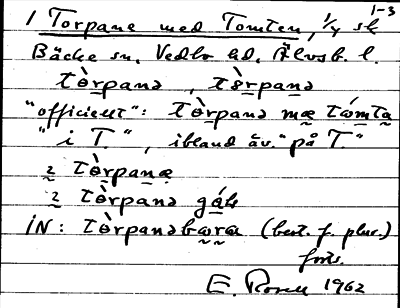 1-3
1 Torpane med Tomten, 1/4 sk
Bäcke sn. Vedbo hd. Älvsb. l.
tò̱rpanə, tò̱rpanə
"officiellt": tò̱rpanə mæ tómta
"i T.", ibland äv. "på T."
2 tò̱rpanæ
2 tò̱rpanə gáɬ
iN: tò̱rpanəbara (best. f. plur.)
forts.
E. Rosell 1962